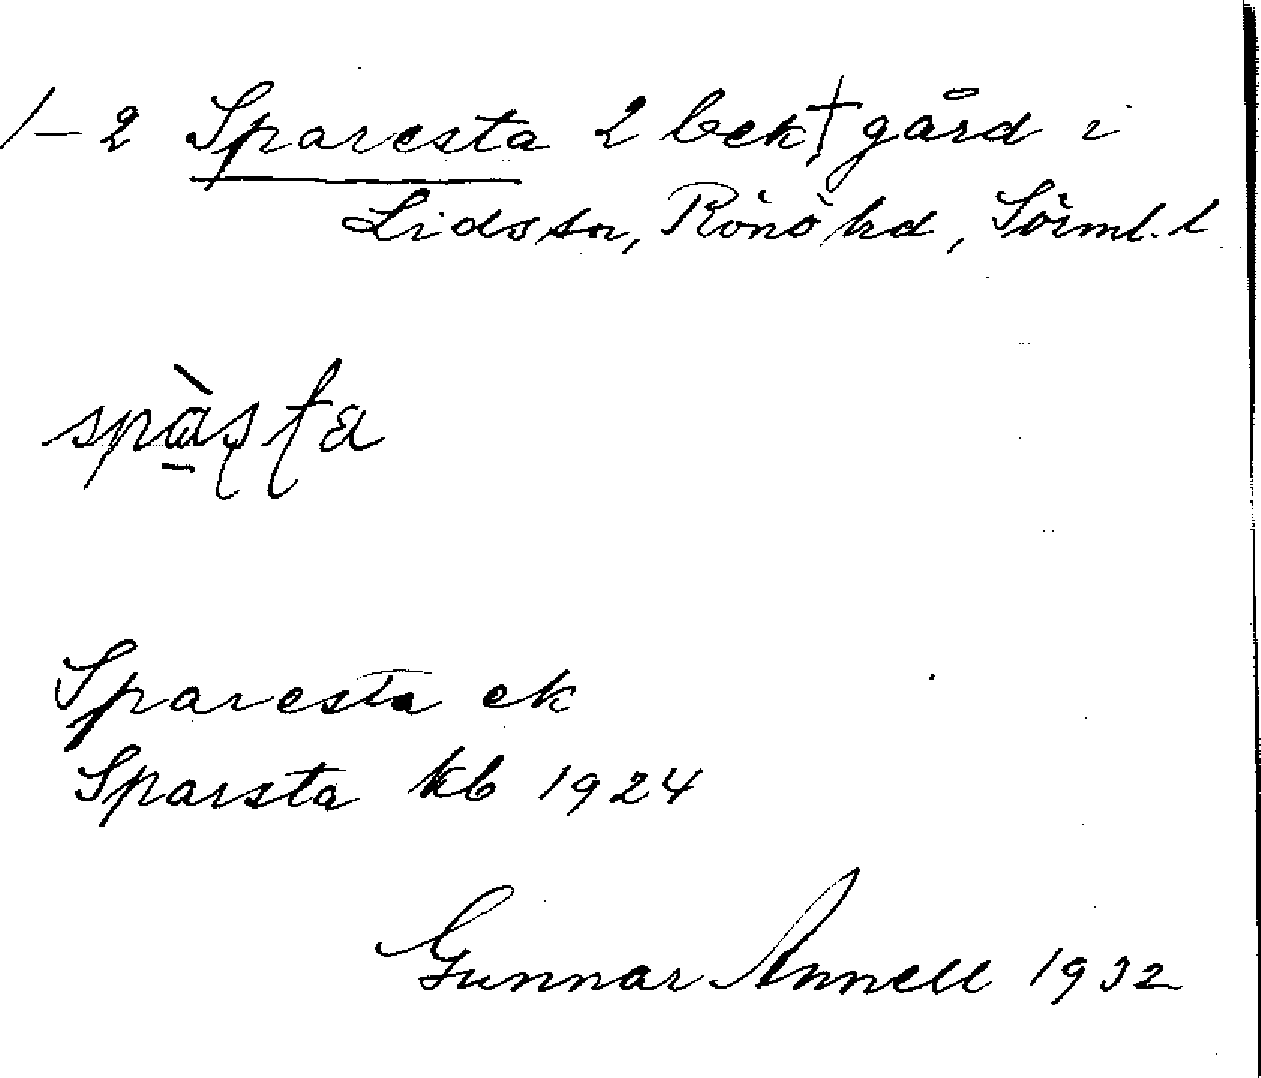 1-2 Sparesta 2 bek† gård i
Lids sn, Rönö hd, Sörml. l
Sparesta ek
Sparsta kb 1924
Gunnar Annell 1932